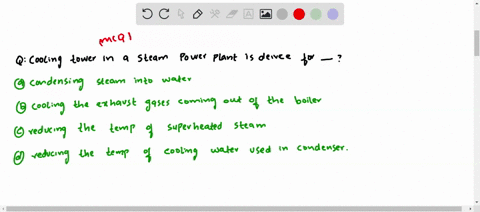 MCQ1
Q: Cooling tower in a steam power plant is deivce for __ ?
(a) condensing steam into water
(b) cooling the exhaust gases coming out of the boiler
(c) reducing the temp of superheated steam
(d) reducing the temp of cooling water used in condenser.